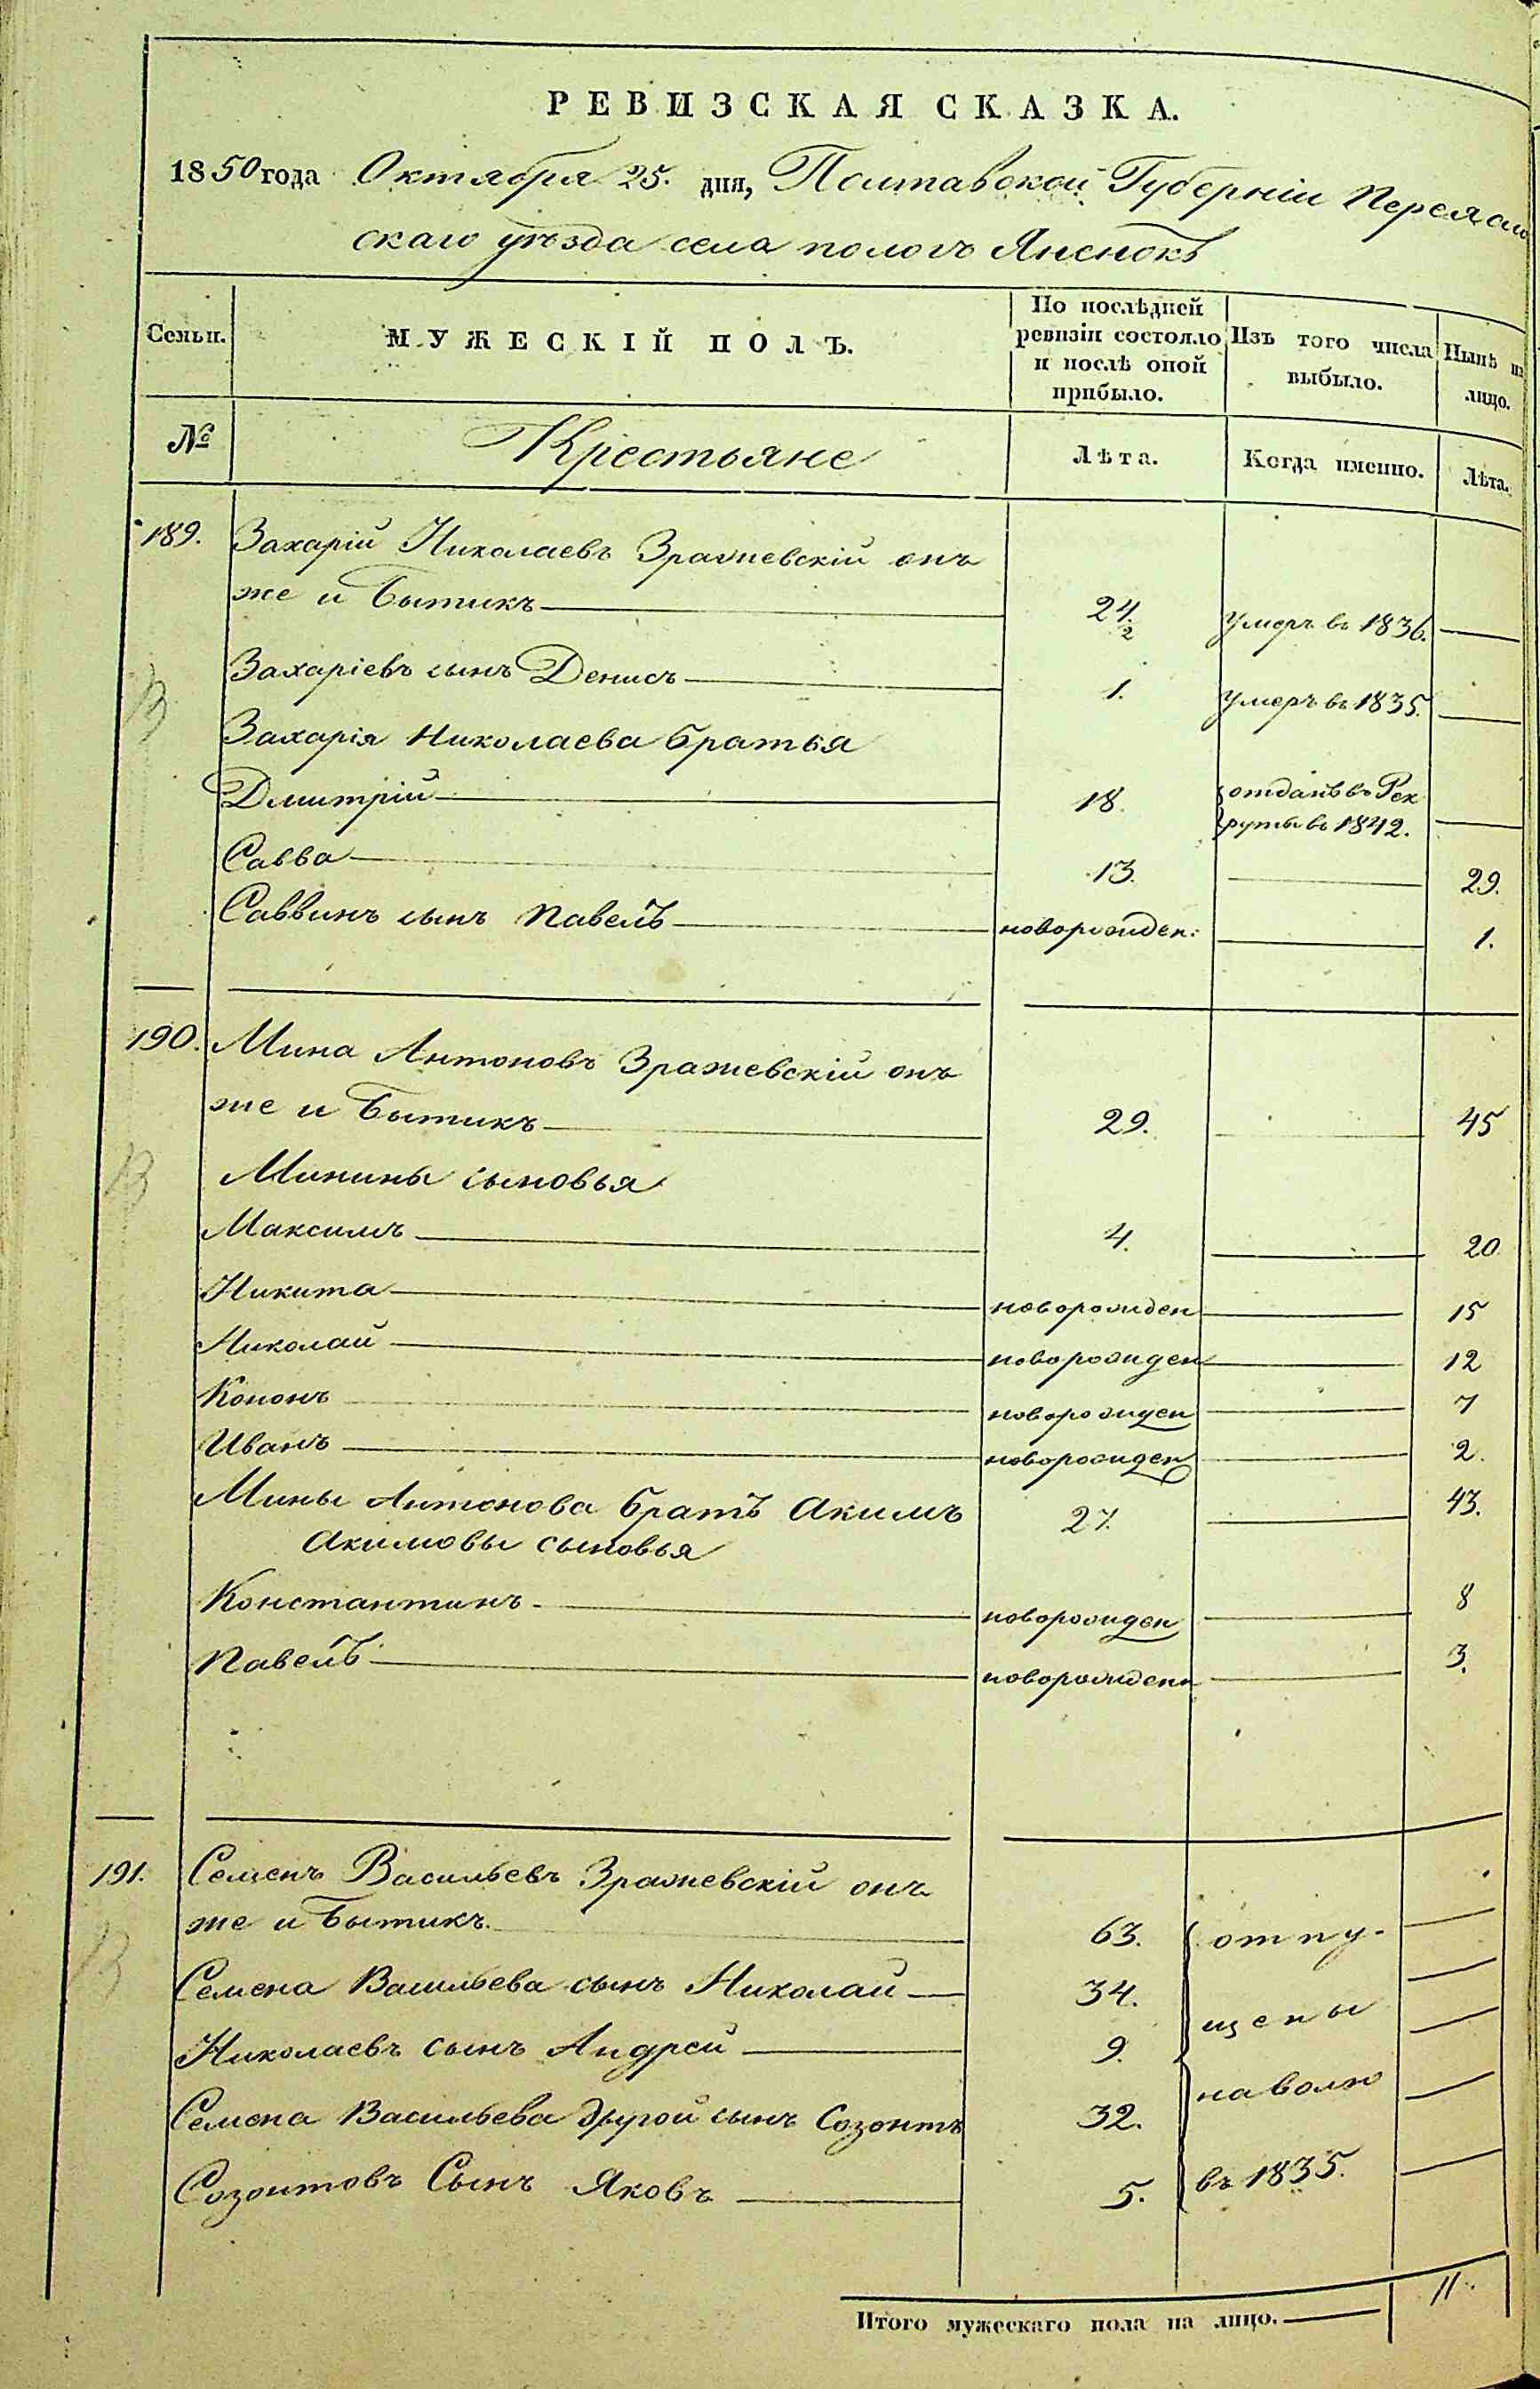 РЕВИЗСКАЯ СКАЗКА.
1850 года Октября 25. дня, Полтавской Губерніи Переясло
скаго уѣзда села пологъ Яненокъ
Семьи. МУЖЕСКІЙ ПОЛЪ. По послѣдней ревизіи состояло и послѣ оной прибыло. Изъ того числа выбыло. Нынѣ на лицо.
№ Крестьяне Лѣта. Когда именно. Лѣта.
189. Захарій Николаевъ Зражевскій онъ
же и Бытикъ 24. 2 умеръ въ 1836.
Захаріевъ сынъ Денисъ 1. умеръ въ 1835.
Захарія Николаева братья
Дмитрій 18. отданъ въ Рек
руты въ 1842.
Савва 13. 29.
Саввинъ сынъ Павелъ новорожден: 1.
190. Мина Антоновъ Зражевскій онъ
же и Бытикъ 29. 45
Минины сыновья
Максимъ 4. 20
Никита новорожден 15
Николай новорожден 12
Кононъ новорожден 7
Иванъ новорожден 2.
Мины Антонова братъ Акимъ 27. 43.
Акимовы сыновья
Константинъ новорожден 8
Павелъ новорожденн 3.
191. Семенъ Васильевъ Зражевскій онъ
же и Бытикъ. 63. отпу-
Семена Васильева сынъ Николай 34.
щены
Николаевъ сынъ Андрей 9.
на волю
Семена Васильева другой сынъ Созонтъ 32.
Созонтовъ Сынъ Яковъ 5. въ 1835.
Итого мужескаго пола на лицо. 11.